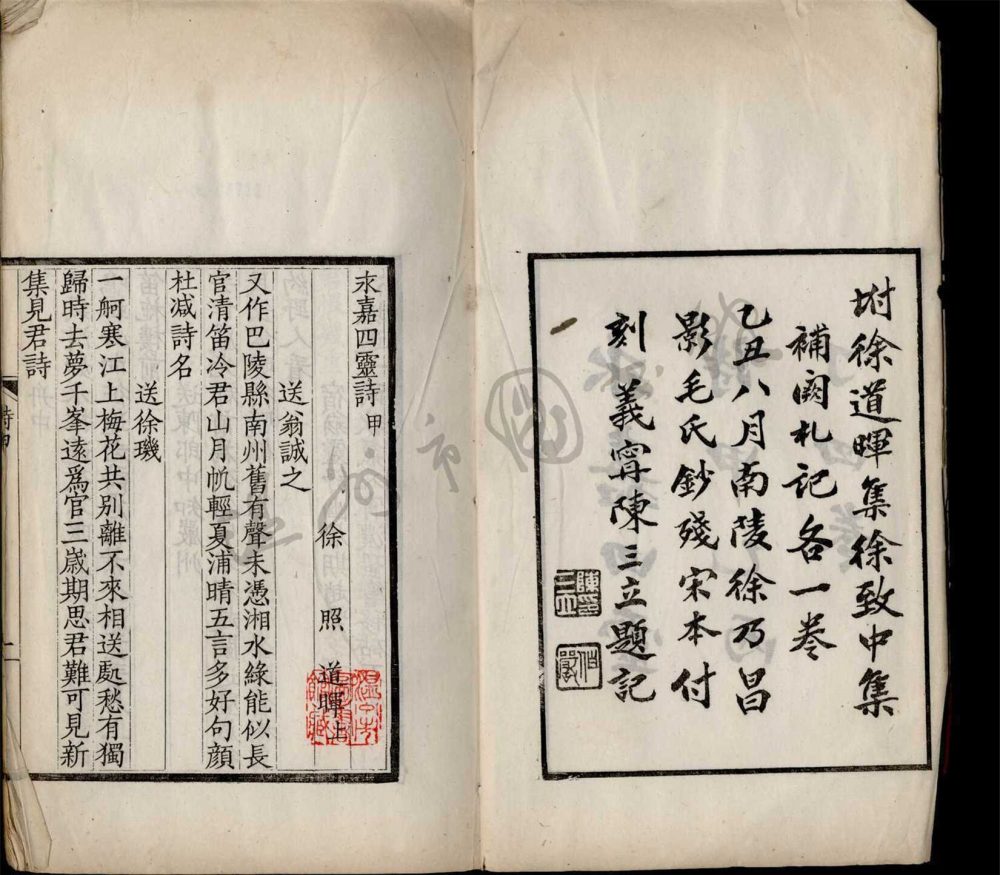 坿徐道暉集徐致中集
補闕札記各一卷
乙丑八月南陵徐乃昌
影毛氏鈔殘宋本付
刻 義寧陳三立題記
永嘉四靈詩甲
徐照 道暉上
送翁誠之
又作巴陵縣南州舊有聲未憑湘水綠能似長
官清笛冷君山月帆輕夏浦晴五言多好句顔
杜减詩名
送徐璣
一舸寒江上梅花共别離不來相送處愁有獨
歸時去夢千峯遠爲官三歲期思君難可見新
集見君詩
詩甲